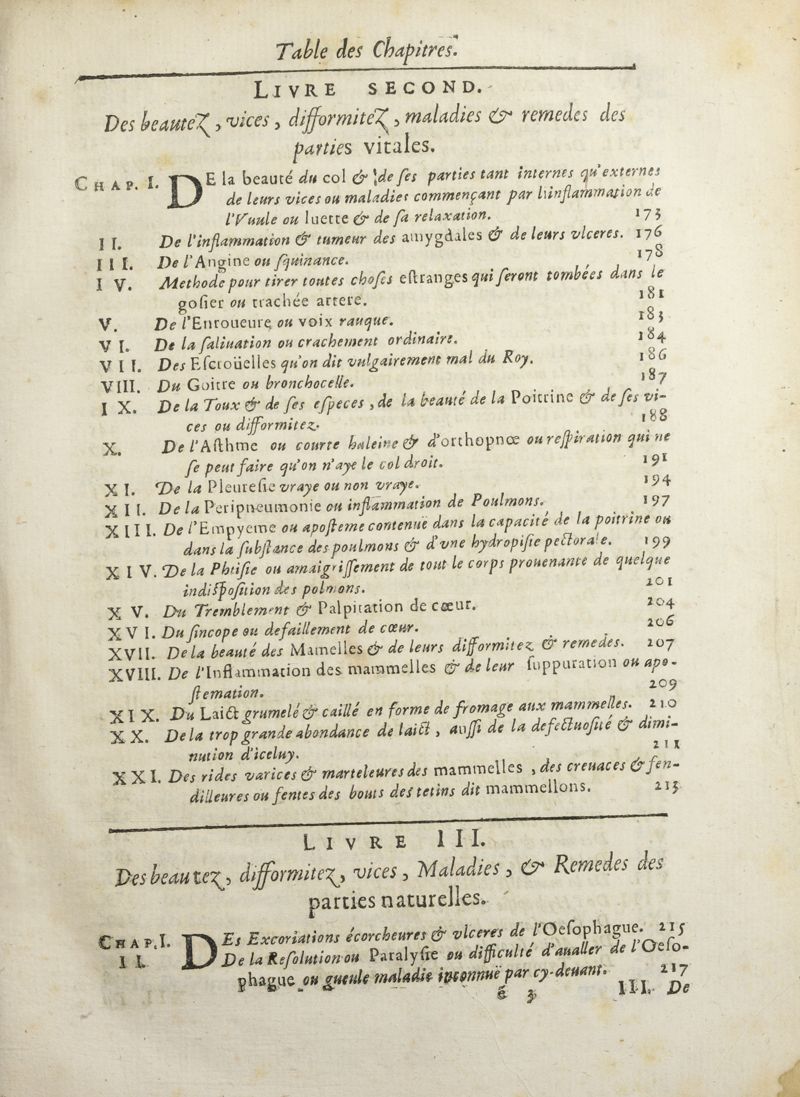 Table des Chapitres.
LIVRE SECOND.
Des beautez, vices, difformitez, maladies & remedes des
parties vitales.
CHAP. I. DE la beauté du col & de ses parties tant internes qu'externes
de leurs vices ou maladies commençant par l'inflammation de
l'Vuule ou luette & de sa relaxation. 175
II. De l'inflammation & tumeur des amygdales & de leurs vlceres. 176
III. De l'Angine ou squinance. 178
IV. Methode pour tirer toutes choses estranges qui seront tombées dans le
gosier ou trachée artere. 181
V. De l'Enroueure ou voix rauque. 183
VI. De la saliuation ou crachement ordinaire. 184
VII. Des Escroüelles qu'on dit vulgairement mal du Roy. 186
VIII. Du Goitre ou bronchocelle. 187
IX. De la Toux & de ses especes, de la beauté de la Poitrine & de ses vi-
ces ou difformitez. 188
X. De l'Asthme ou courte haleine & d'orthopnœ ou respiration qui ne
se peut faire qu'on n'aye le col droit. 191
XI. De la Pleuresie vraye ou non vraye. 194
XII. De la Peripneumonie ou inflammation de Poulmons. 197
XIII. De l'Empyeme ou aposteme contenuë dans la capacité de la poitrine ou
dans la substance des poulmons & d'vne hydropisie pectorale. 199
XIV. De la Phtisie ou amaigrissement de tout le corps prouenante de quelque
indisposition des polmons. 201
XV. Du Tremblement & Palpitation de cœur. 204
XVI. Du sincope ou defaillement de cœur. 206
XVII. De la beauté des Mamelles & de leurs difformitez & remedes. 207
XVIII. De l'Inflammation des mammelles & de leur suppuration ou apo-
stemation. 209
XIX. Du Laict grumelé & caillé en forme de fromage aux mammelles. 210
XX. De la trop grande abondance de laict, aussi de la defectuosité & dimi-
nution d'iceluy. 211
XXI. Des rides varices & marteleures des mammelles, des creuaces & fen-
dilleures ou fentes des bouts des tetins dit mammellons. 213
LIVRE III.
Des beautez, difformitez, vices, Maladies, & Remedes des
parties naturelles.
CHAP. I. DEs Excoriations écorcheures & vlceres de l'Oesophague. 215
II. De la Resolution ou Paralysie ou difficulté d'aualler de l'Oeso-
phague ou gueule maladie inconnuë par cy-deuant. 217
é 3 III. De